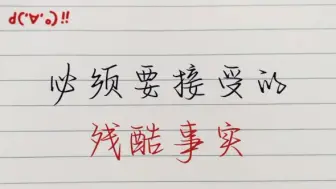 必须要接受的
残酷事实